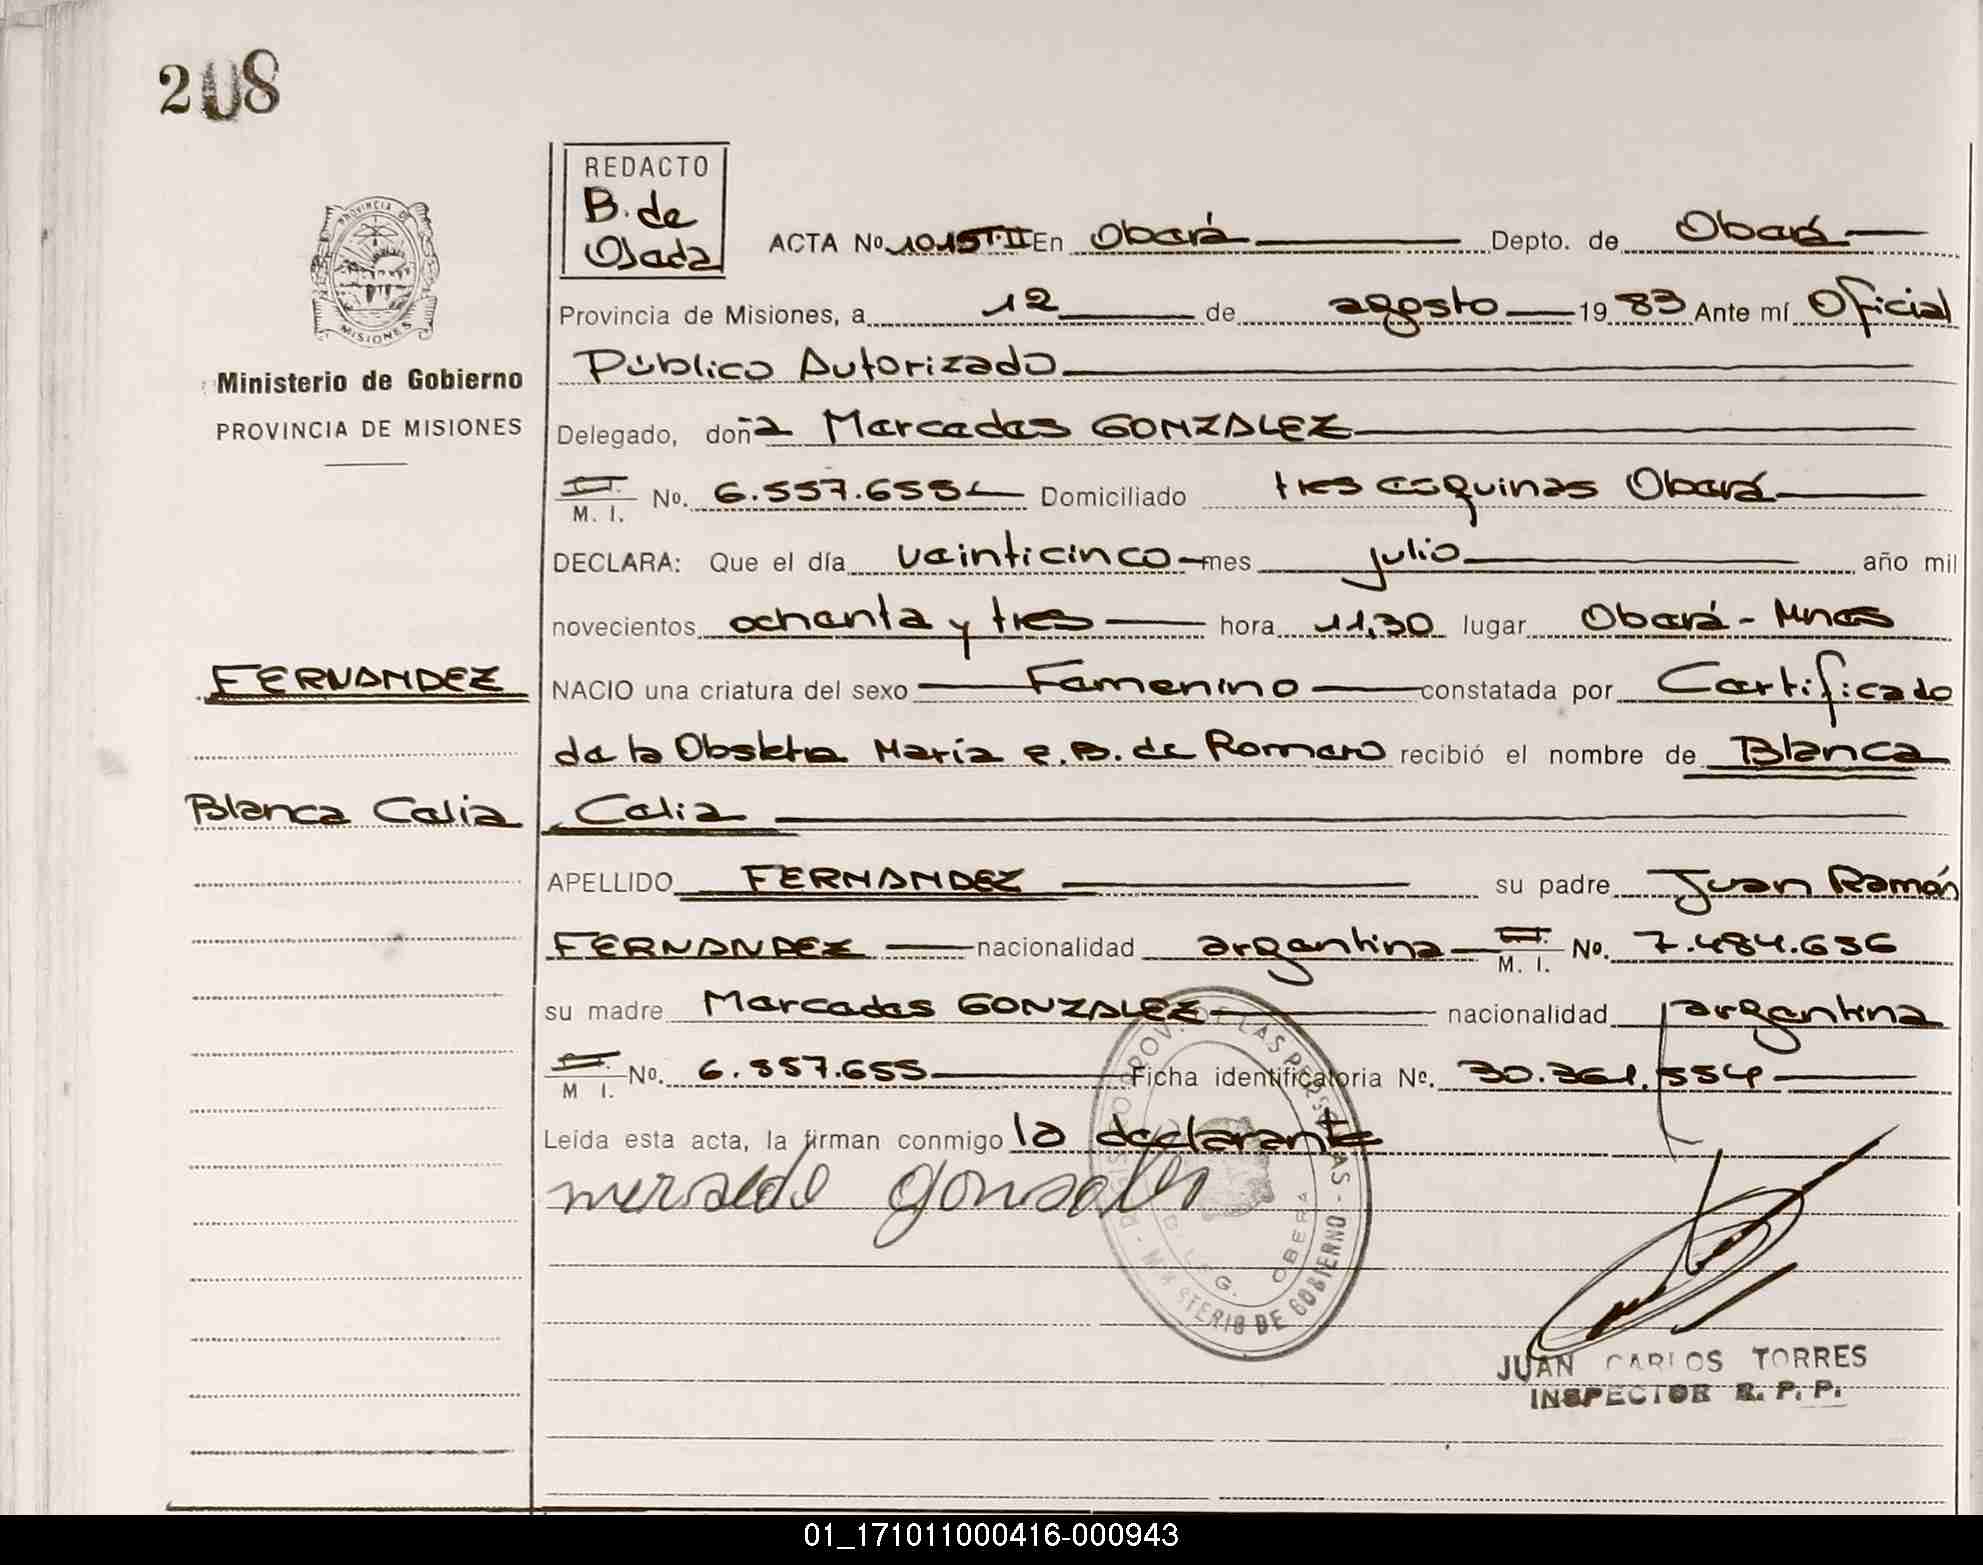 208
REDACTO
B. de
Ojeda
PROVINCIA DE
MISIONES
Ministerio de Gobierno
PROVINCIA DE MISIONES
ACTA No 1015 T.II En Oberá Depto. de Oberá
Provincia de Misiones, a 12 de agosto 1983 Ante mí Oficial
Público Autorizado
Delegado, doña Mercedes GONZALEZ
M. I. No. 6.557.655 Domiciliado tres esquinas Oberá
DECLARA: Que el día veinticinco mes julio año mil
novecientos ochenta y tres hora 11,30 lugar Oberá - Mnes
FERNANDEZ
NACIO una criatura del sexo Femenino constatada por Certificado
de la Obstetra María e. B. de Romero recibió el nombre de Blanca
Blanca Celia
Celia
APELLIDO FERNANDEZ su padre Juan Ramón
FERNANDEZ nacionalidad argentina M. I. No. 7.484.656
su madre Mercedes GONZALEZ nacionalidad argentina
M I. No. 6.557.655 Ficha identificatoria No. 30.361.554
Leída esta acta, la firman conmigo la declarante
REGISTRO PROV. DE LAS PERSONAS - MINISTERIO DE GOBIERNO -
DELEG. OBERA
JUAN CARLOS TORRES
INSPECTOR R. P. P.
01_171011000416-000943